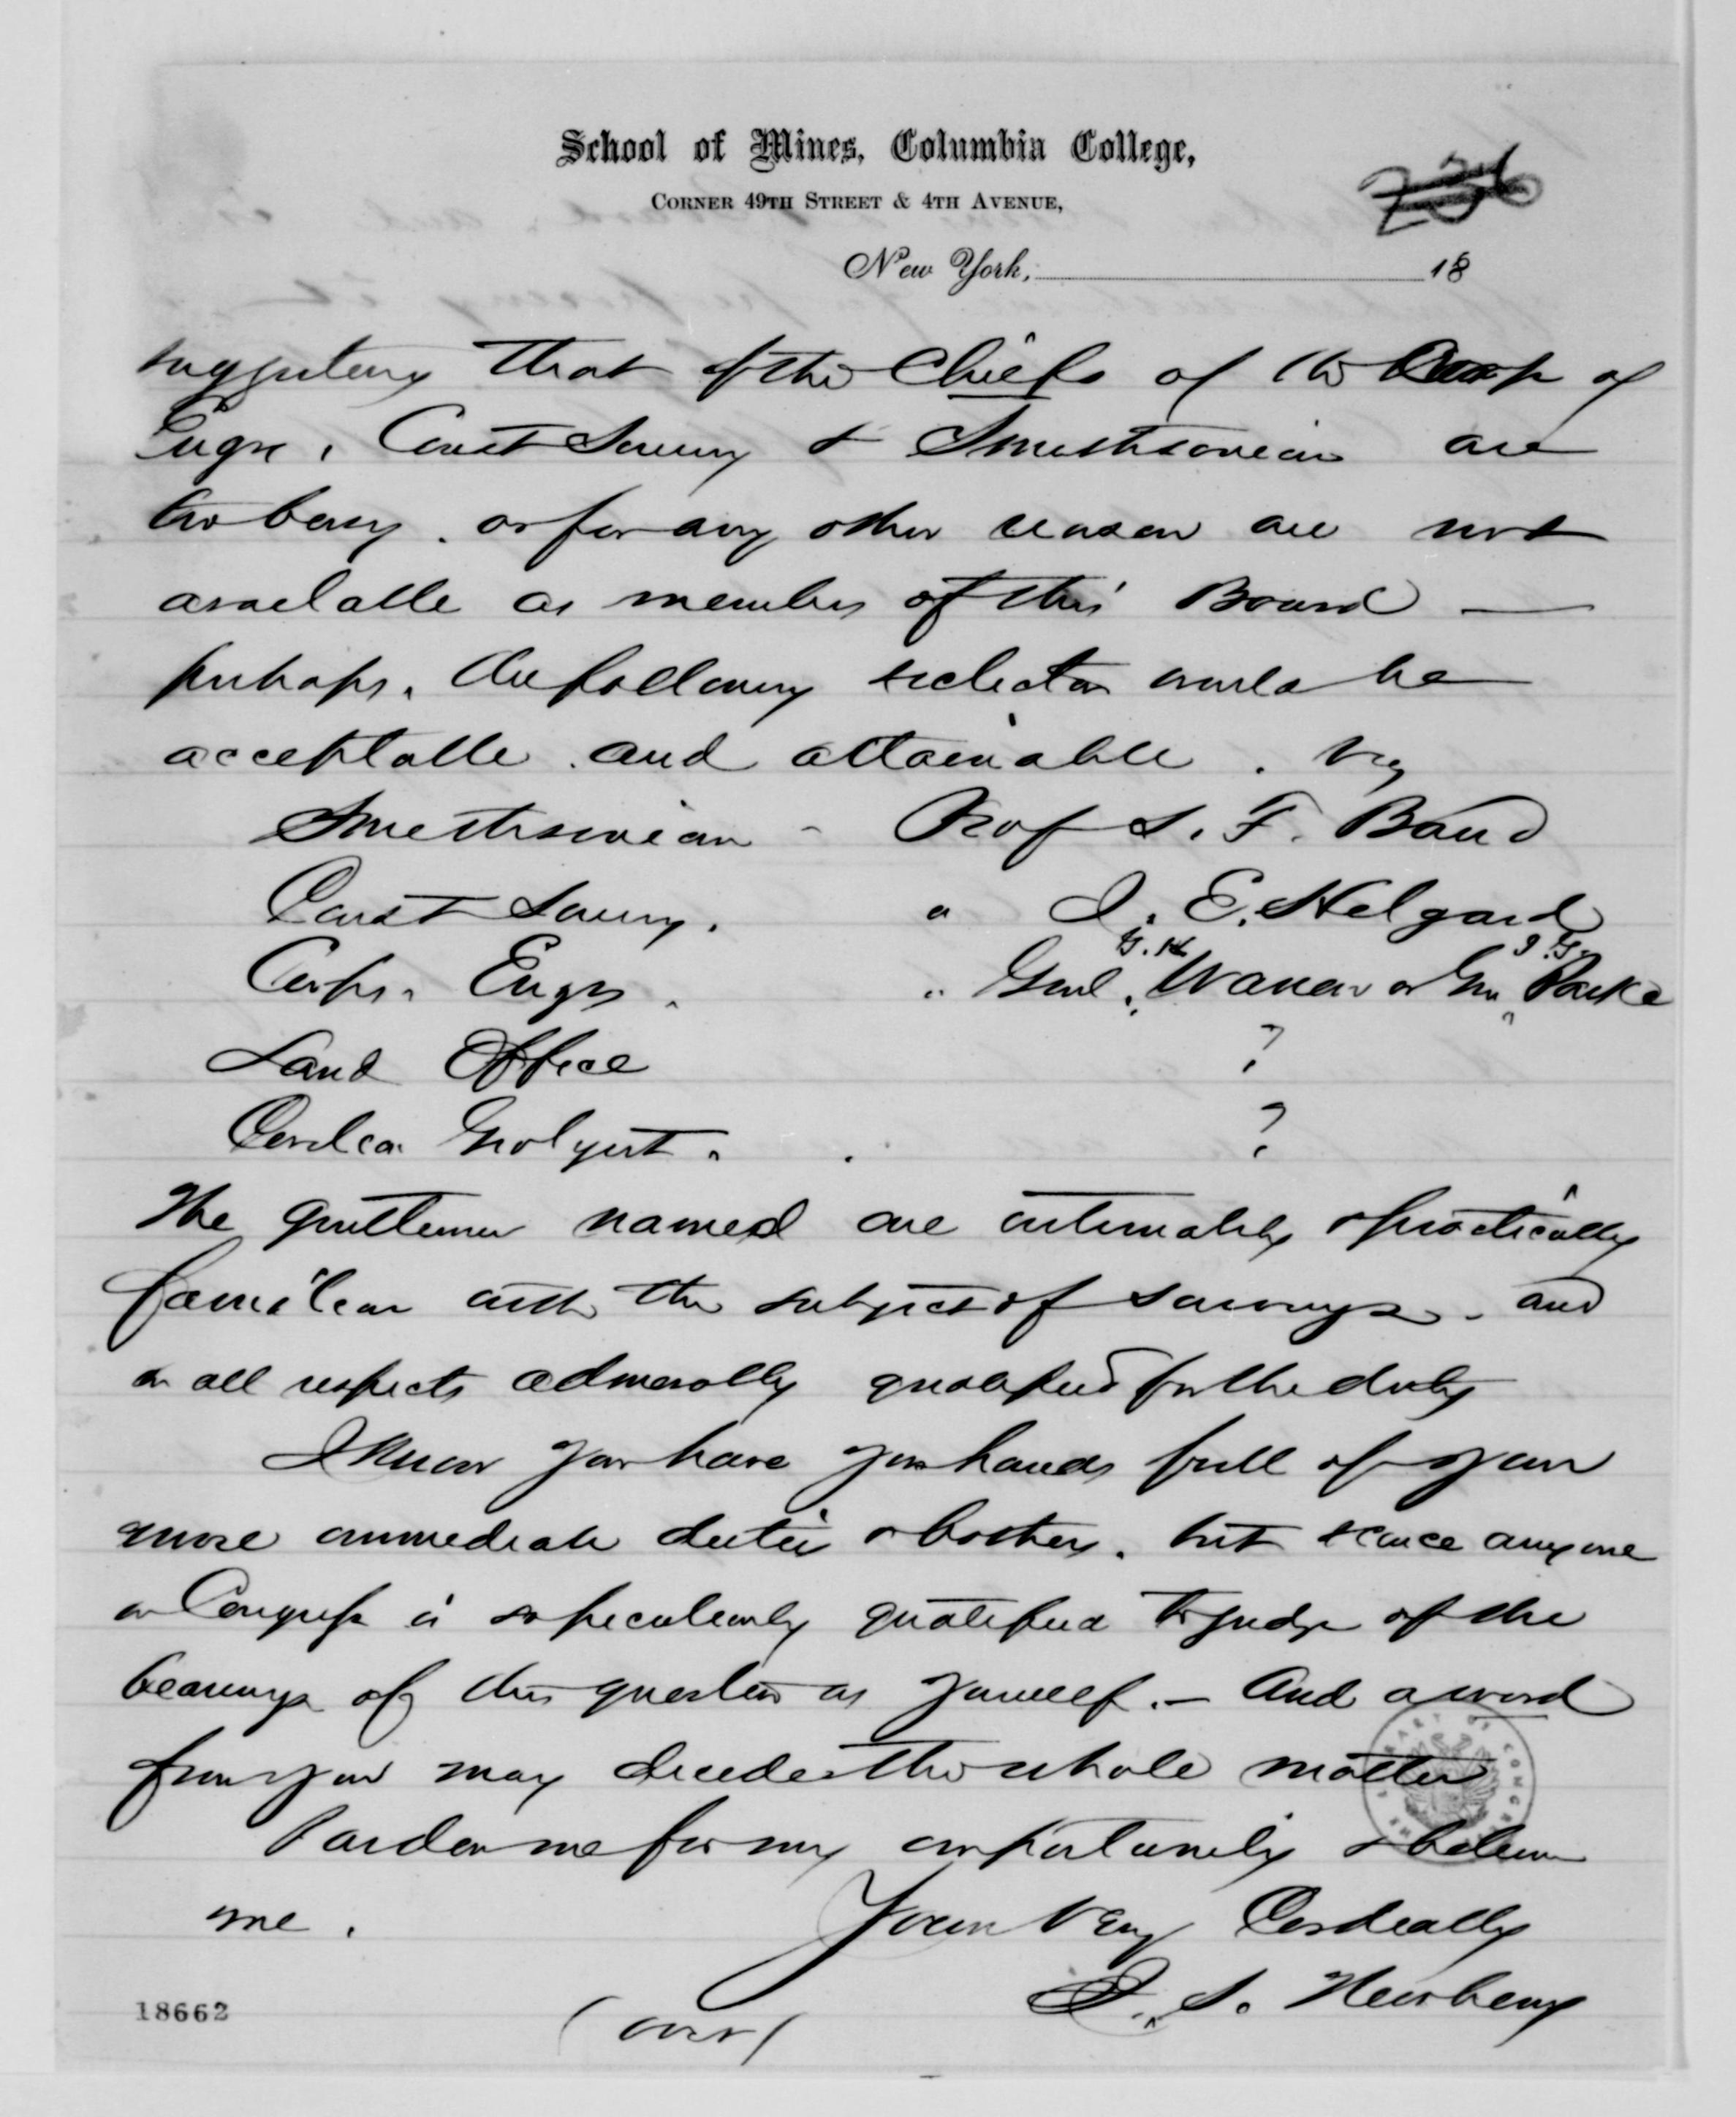 School of Mines, Columbia College,
Corner 49th Street & 4th Avenue,
236
New York, 18
suggesting that if the Chiefs of the Corps of
Engrs, Coast Survey & Smithsonian are
too busy, or for any other reason are not
available as members of this Board —
perhaps, the following selection would be
acceptable and attainable. viz
Smithsonian - Prof S. F. Baird
Coast Survey. " J. E. Hilgard
Corps. Engrs. " Genl. G. K. Warren or Gn. J. G. Parke
Land Office ?
Geolgist. ?
The gentlemen named are intimately & practically
familiar with the subject of surveys. and
in all respects admirably qualified for the duty
I know you have your hands full of your
more immediate duties & bothers. but scarce anyone
in Congress is so peculiarly qualified to judge of the
bearings of this question as yourself. — And a word
from you may decide the whole matter
Pardon me for my importunity & believe
me. Yours Very Cordially
J. S. Newberry
(over)
18662
LIBRARY OF CONGRESS